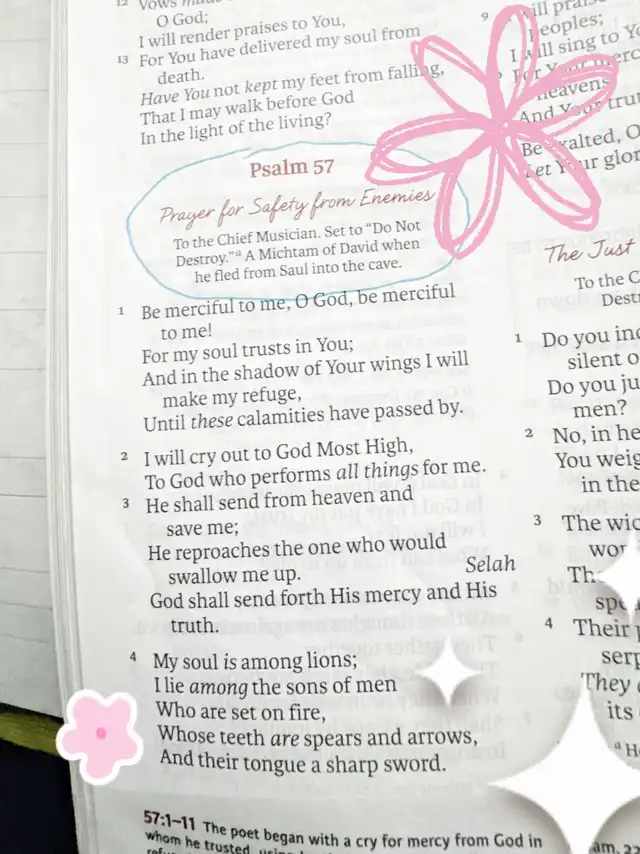 12 Vows made
O God;
I will render praises to You,
13 For You have delivered my soul from
death.
Have You not kept my feet from falling,
That I may walk before God
In the light of the living?
Psalm 57
Prayer for Safety from Enemies
To the Chief Musician. Set to “Do Not
Destroy.”a A Michtam of David when
he fled from Saul into the cave.
1 Be merciful to me, O God, be merciful
to me!
For my soul trusts in You;
And in the shadow of Your wings I will
make my refuge,
Until these calamities have passed by.
2 I will cry out to God Most High,
To God who performs all things for me.
3 He shall send from heaven and
save me;
He reproaches the one who would
swallow me up.
Selah
God shall send forth His mercy and His
truth.
4 My soul is among lions;
I lie among the sons of men
Who are set on fire,
Whose teeth are spears and arrows,
And their tongue a sharp sword.
57:1–11 The poet began with a cry for mercy from God in
whom he trusted, using
9 will
peoples;
I will sing to
For Your
heavens
And Your
Be exalted, O
Let Your
The Just
To the
1 Do you
silent
Do you
men?
2 No, in
You
in the
3 The
4 Their
They
its
a